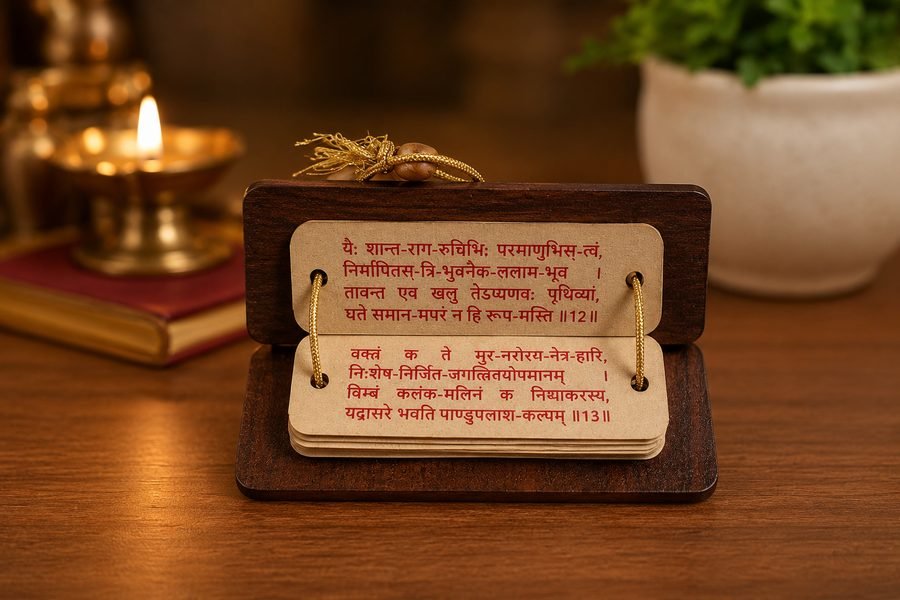 यैः शान्त-राग-रुचिभिः परमाणुभिस्-त्वं,
निर्मापितस्-त्रि-भुवनैक-ललाम-भूव ।
तावन्त एव खलु तेऽप्यणवः पृथिव्यां,
घते समान-मपरं न हि रूप-मस्ति ॥12॥
वक्त्रं क ते मुर-नरोरय-नेत्र-हारि,
निःशेष-निर्जित-जगत्त्रितयोपमानम् ।
विम्बं कलंक-मलिनं क निय्याकरस्य,
यद्रासरे भवति पाण्डुपलाश-कल्पम् ॥13॥